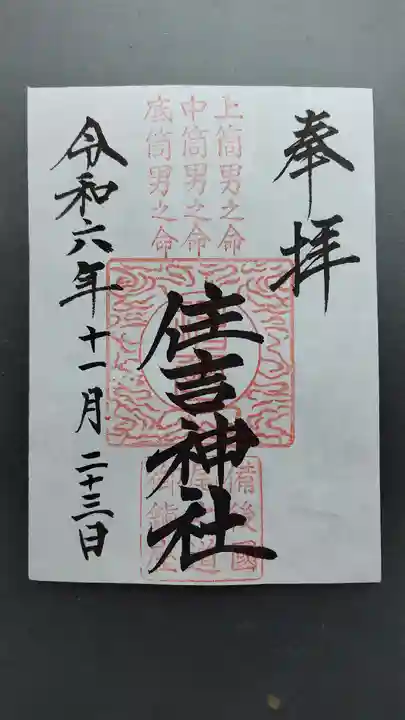 奉拝
上筒男之命
中筒男之命
底筒男之命
住吉神社
備後國
令和六年十一月二十三日